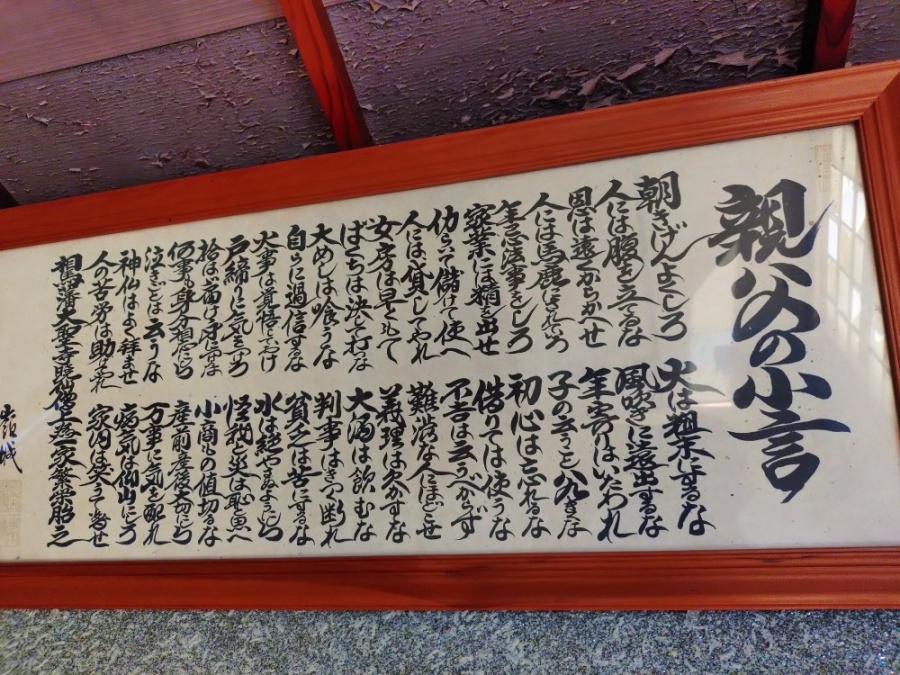 親父の小言
朝きげんよくしろ
火は粗末にするな
人には腹を立てるな
風吹きに遠出するな
恩は遠くからかへせ
年寄りはいたわれ
人には馬鹿にされていろ
子の云うこと八九きくな
年忌法事をしろ
初心は忘れるな
家業には精を出せ
借りては使うな
仂らいて儲けて使へ
不吉は云うべからず
人には貸してやれ
難渋な人にほどこせ
女房は早くもて
義理は欠かすな
ばくちは決して打つな
大酒は飲むな
大めしは喰うな
判事はきつく断れ
自らに過信するな
貧乏は苦にするな
火事は覚悟しておけ
水は絶やさぬようにしろ
戸締りに気をつけろ
怪我と災は恥と思へ
拾はば届け身につけるな
小商もの値切るな
何事も身分相応にしろ
産前産後大切にしろ
泣きごとは云うな
万事に気を配れ
神仏はよく拝ませ
病気は仰山にしろ
人の苦労は助けてやれ
家内は笑ふて暮せ
相馬藩大聖寺暁僧上